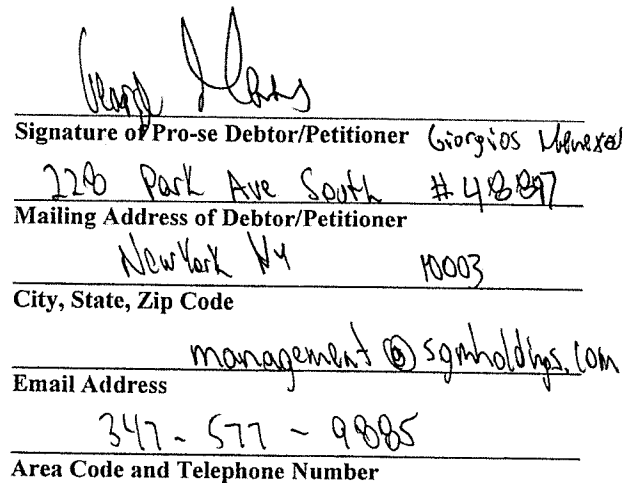 George
Signature of Pro-se Debtor/Petitioner Giorgios
228 Park Ave South #48897
Mailing Address of Debtor/Petitioner
New York NY 10003
City, State, Zip Code
management@sgmholdings.com
Email Address
347-577-9885
Area Code and Telephone Number